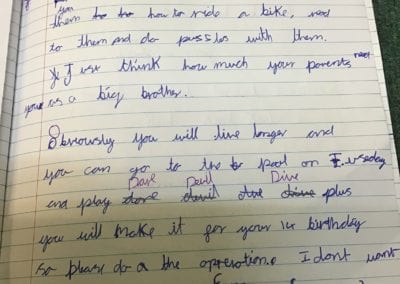 you
them how to ride a bike, read
to them and do puzzles with them.
Just think how much your parents need
you as a big brother.
Obviously you will live longer and
you can go to the pool on Tuseday
Dave Devil Dive
and play plus
you will make it for your birthday
so please do the opreotion. I dont want